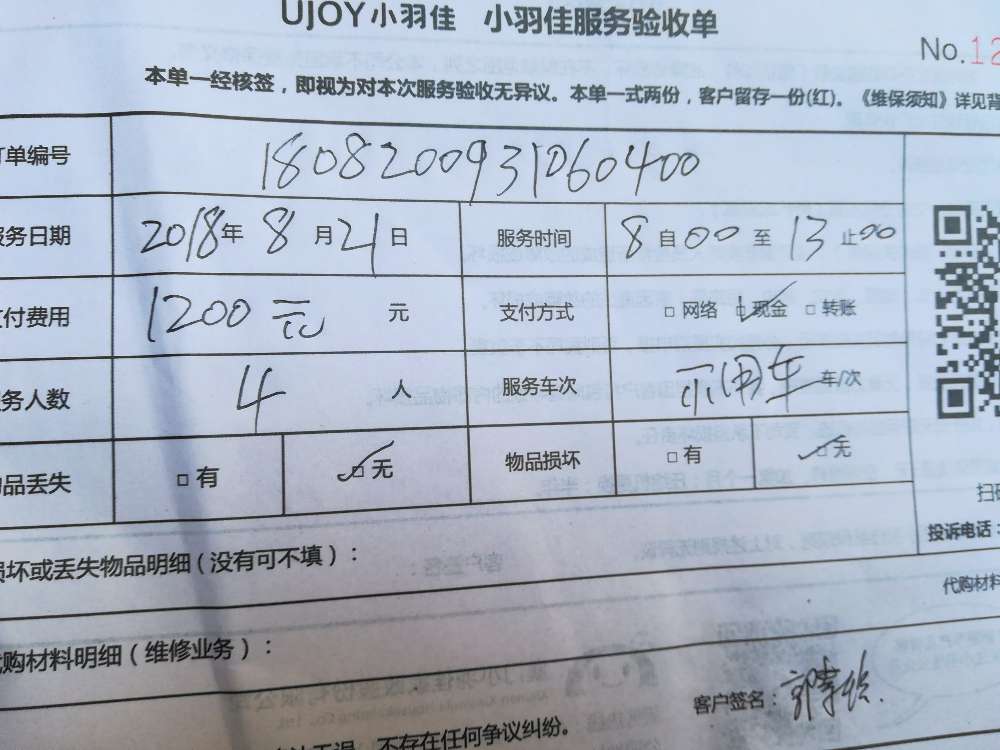 UJOY小羽佳 小羽佳服务验收单
No.12
本单一经核签，即视为对本次服务验收无异议。本单一式两份，客户留存一份(红)。《维保须知》详见背
订单编号 1808200931060400
服务日期 2018年 8 月 21 日 服务时间 8 自00 至 13 止00
支付费用 1200元 元 支付方式 □ 网络 □ 现金 □ 转账
服务人数 4 人 服务车次 不用车 车/次
物品丢失 □ 有 □ 无 物品损坏 □ 有 □ 无
扫码
投诉电话：
损坏或丢失物品明细（没有可不填）：
代购材料
代购材料明细（维修业务）：
客户签名：
不存在任何争议纠纷。